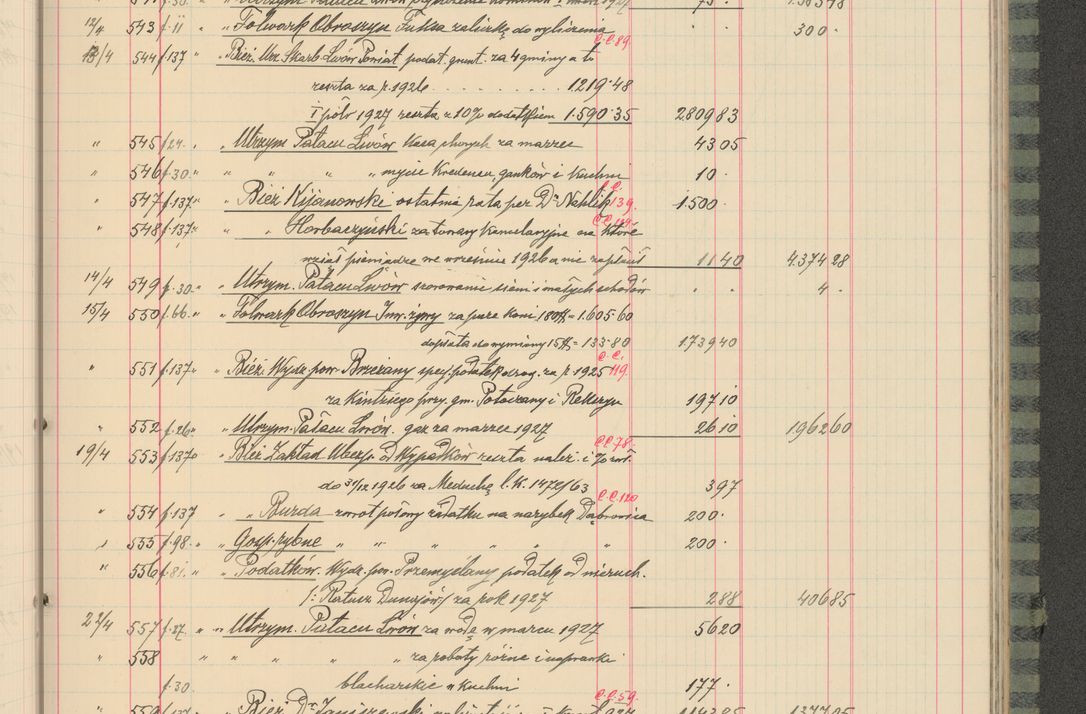 12/4 543 f. 11 " " Folwark Obroszyn Fuksa zaliczkę do wyliczenia . . 300 ·
C.C. 89.
13/4 544 f. 137 " Bież. Urz. Skarb. Lwów Powiat podat. grunt. za 4 gminy a to
reszta za r. 1926 . . . . . . . . 1219·48
I pół 1927 reszta z 10% dodatkiem 1·590·35 280983
" 545 f. 24. " " Utrzym. Pałacu Lwów Kasa chorych za marzec 4305
" 546 f. 30. " " " " " " mycie Kredensu, ganków i Kuchni 10 ·
C.C.
" 547 f. 137. " " Bież Kijanowski ostatnia rata per Dr. Nahlik 139. 1·500 ·
C.C. 114.
" 548 f. 137. " " " Horbaczyński za towary Kancelaryjne na które
wziął pieniądze we wrześniu 1926 a nie zapłacił 1140 4·37428
14/4 549 f. 30. " " Utrzym. Pałacu Lwów szorowanie sieni i małych schodów . . 4 ·
15/4 550 f. 66. " " Folwark Obroszyn Inw. żywy za parę koni 180 $ = 1·605·60
dopłata do wymiany 15 $ = 133·80 173940
C.C.
" 551 f. 137. " " Bież. Wydz. pow. Brzeżany spec. podatek drog. za r. 1925 119.
za Kintzięgo przy. gm. Potoczany i Rekszyn 19710
" 552 f. 26. " " Utrzym. Pałacu Lwów. gaz za marzec 1927 2610 196260
C.C. 78.
19/4 553 f. 137. " " Bież Zakład Ubezp. od Wypadków reszta należ. i % zwł.
do 31/12 1926 za Meduchę l. K. 1472/63 397
C.C. 120
" 554 f. 137 " " Burda zwrot połowy zadatku na narybek Dąbrowica 200 ·
" 555 f. 98. " " Gosp. rybne " " " " " " 200 ·
" 556 f. 81. " " Podatków. Wydz. pow. Przemyślany podatek od nieruch.
/: Ratusz Dunajów :/ za rok 1927 288 40685
22/4 557 f. 27. " " Utrzym. Pałacu Lwów za wodę w marcu 1927 5620
" 558 " " " " " " za roboty różne i naprawki
f. 30. blacharskie w Kuchni 177 ·
C.C. 59.